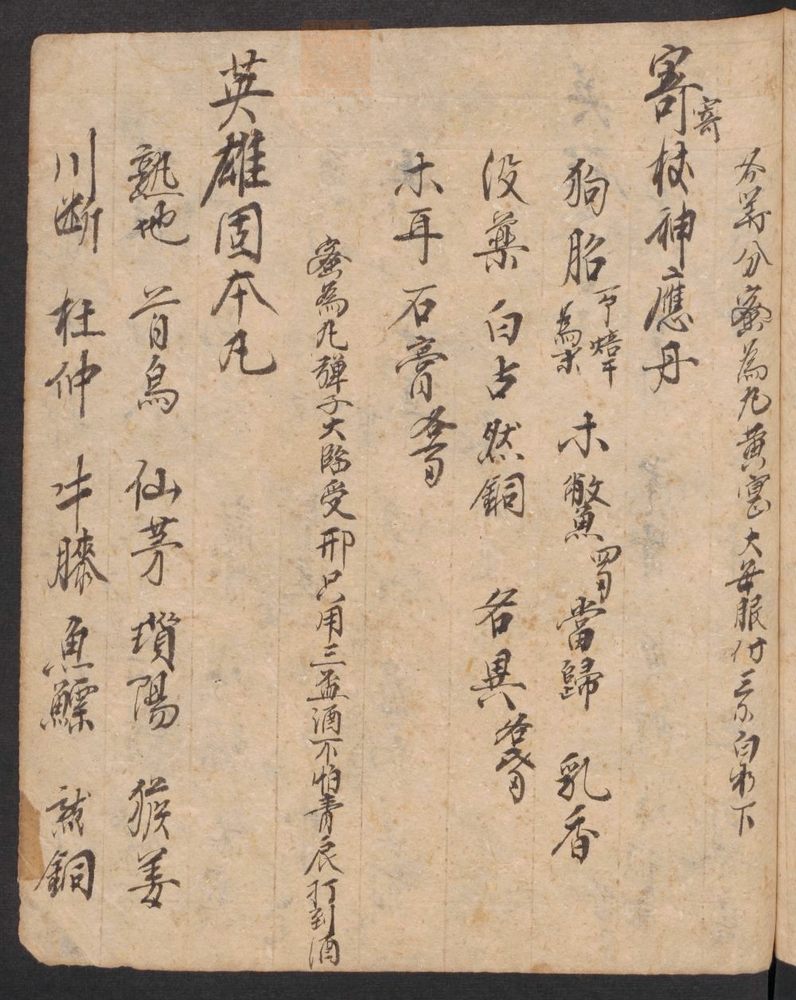 各等分蜜為丸黃豆大每服付三分白水下
寄杖神應丹
寄
狗胎 焙干為末 木鱉 四个 當歸 乳香
没藥 白占 然銅 名異 各 
木耳 石膏 各
蜜為丸彈子大臨受刑只用三盃酒不怕青衣打到酒
英雄固本丸
熟地 首烏 仙茅 瑣陽 猴姜
川断 杜仲 牛膝 魚鰾 然銅